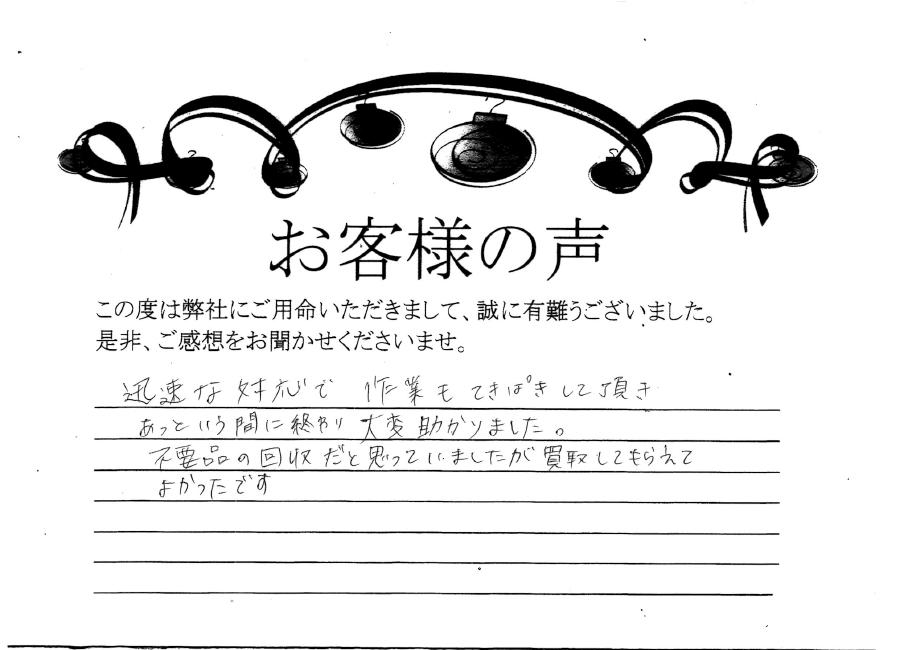 お客様の声
この度は弊社にご用命いただきまして、誠に有難うございました。
是非、ご感想をお聞かせくださいませ。
迅速な対応で 作業もてきぱきして頂き
あっという間に終わり 大変助かりました。
不要品の回収だと思っていましたが買取してもらえて
よかったです